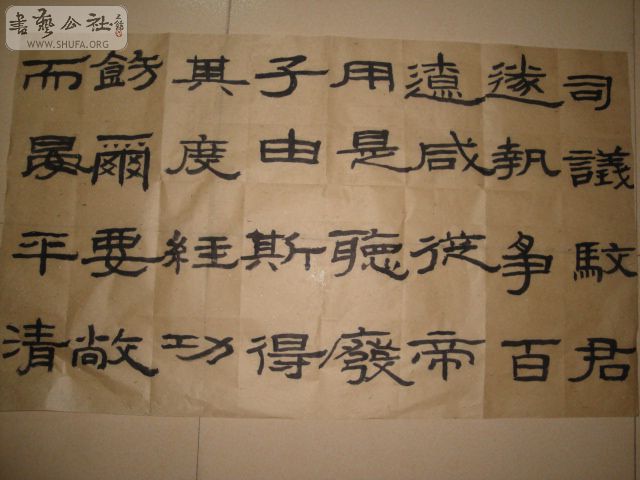 司議駮君
遂執争百
遼咸從帝
用是聽廢
子由斯得
其度經功
飭爾要敞
而晏平清
書藝公社
WWW.SHUFA.ORG